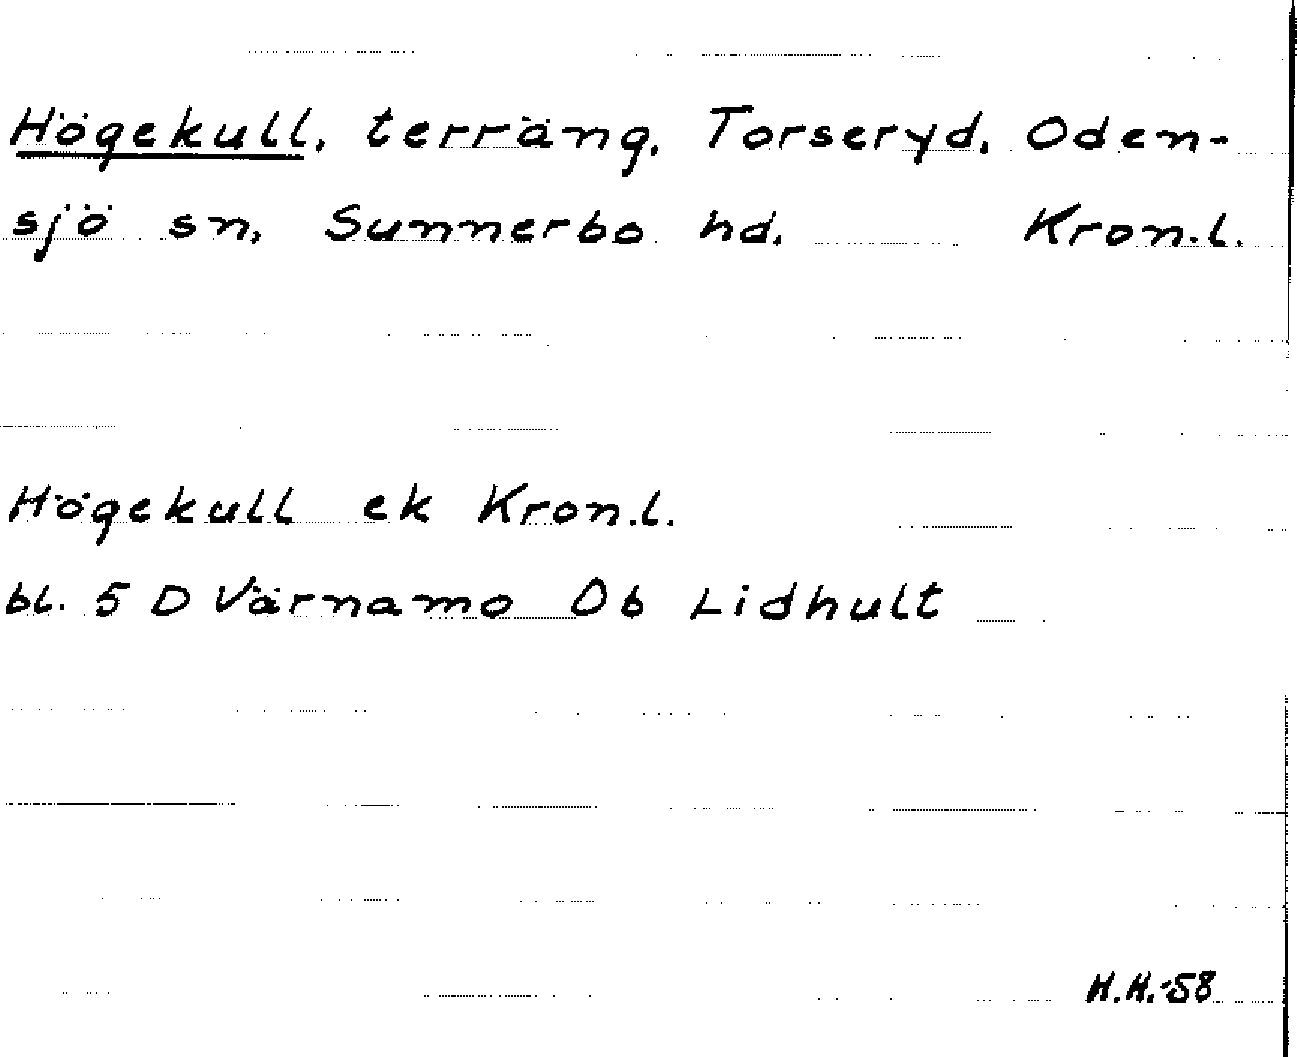 Högekull, terräng, Torseryd, Oden-
sjö sn, Sunnerbo hd, Kron.l.
Högekull ek Kron.l.
bl. 5 D Värnamo Ob Lidhult
H.H.-58